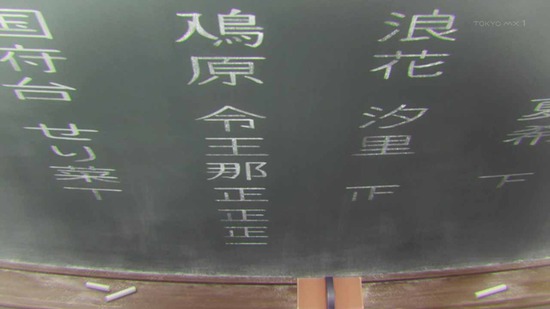 TOKYO MX1
夏希
下
浪花
汐里
鳰原
令王那
正正正一
国府台
せり菜
丅